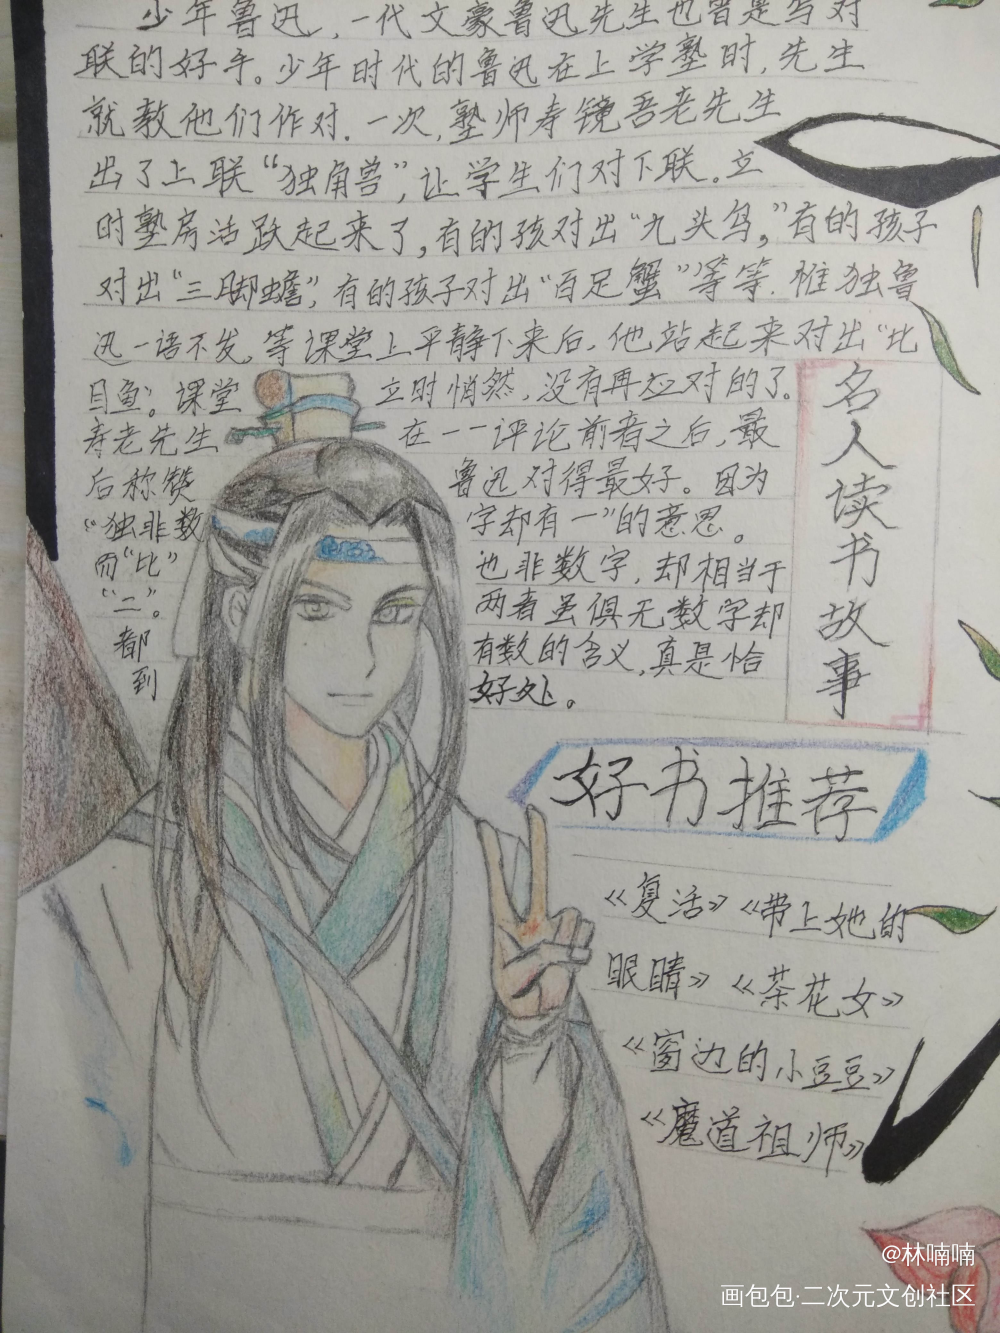 少年鲁迅，一代文豪鲁迅先生也曾是写对
联的好手。少年时代的鲁迅在上学塾时，先生
就教他们作对．一次，塾师寿镜吾老先生
出了上联“独角兽”，让学生们对下联。立
时塾房活跃起来了，有的孩对出“九头鸟，”有的孩子
对出“三脚蟾”，有的孩子对出“百足蟹”等等．惟独鲁
迅一语不发，等课堂上平静下来后，他站起来对出“比
目鱼”。课堂 立时悄然，没有再应对的了．
寿老先生 在一一评论前者之后，最
后称赞 鲁迅对得最好。因为
“独非数 字却有一”的意思。
而“比” 也非数字，却相当于
“二”。 两者虽俱无数字却
都 有数的含义，真是恰
到 好处。
名人读书故事
好书推荐
《复活》《带上她的
眼睛》《茶花女》
《窗边的小豆豆》
《魔道祖师》
@林喃喃
画包包·二次元文创社区